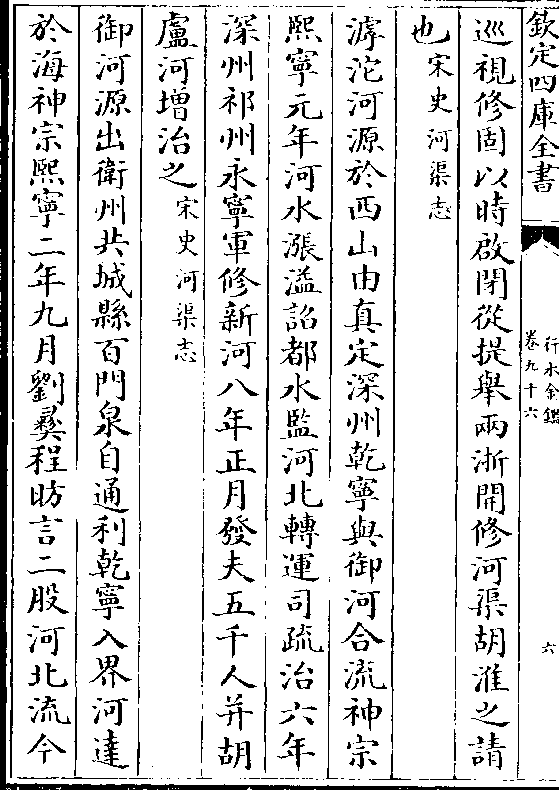 欽定四庫全書
行水金鑑
卷九十六
六
巡視修固以時啟閉從提舉兩浙開修河渠胡淮之請
也宋史河渠志
滹沱河源於西山由真定深州乾寧與御河合流神宗
熙寧元年河水漲溢詔都水監河北轉運司疏治六年
深州祁州永寧軍修新河八年正月發夫五千人并胡
盧河增治之宋史河渠志
御河源出衛州共城縣百門泉自通利乾寧入界河達
於海神宗熙寧二年九月劉彝程昉言二股河北流今